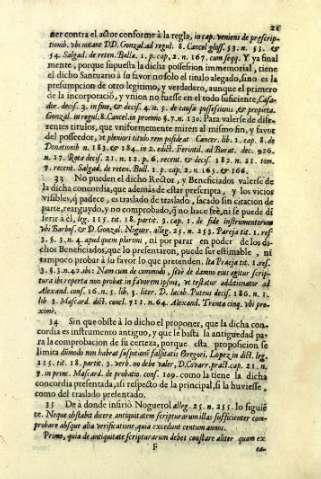 21
ner contra el actor conforme à la regla, in cap. veniens de prescrip-
tionib. vbi notant DD. Gonzal. ad regul. 8. Cancel. gloss. 53. n. 53. &
54. Salgad. de reten. Bulla. 2. p. cap. 2. n. 167. cum seqq. Y ya final
mente, porque supuesta la dicha possession immemorial, tiene
el dicho Santuario à su favor no solo el titulo alegado, sino es la
presumpcion de otro legitimo, y verdadero, aunque el primero
de la incorporació, y vnion no fuesse en el todo suficiente,
dor. decis. 3. in fine, & decis. 4. n. 5. de causa possessionis, & propieta.
Gonzal. in regul. 8. Cancel. in proemio §. 7. n. 130. Para valerse de dife-
rentes titulos, que vniformemente miren al mismo fin, y favor
del possedor, in plenitit. Cancer. lib. 1. cap. 8. de
Donationib. n. 183. & 184. in 2. edict. Ferentil. ad Burat. dec. 926.
n. 27. Rota decis. 21. n. 12. p. 6. recent. & decis. 382. n. 21. tom.
7. recent. Salgad. de reten. Bull. 1. p. cap. 2. n. 165. & 166.
33 No pueden el dicho Rector, y Beneficiados valerse de
la dicha concordia, que además de estar prescripta, y los vicios
visibles, q̃ padece, es traslado de traslado, sacado sin citacion de
parte, reargüydo, y no comprobado, q̃ no hace fee, ni se puede di
ferir à el, leg. 115. tit. 18. partit. 3. cap. 1. de fide instrumentorum
vbi Barbos. & D. Gonzal. Noguer. alleg. 25. n. 253. Pareja tit. 1. res.
3. §. 3. n. 4. apud quem plurimi, ni por parar en poder de los di-
chos Beneficiados, que lo presentaron, puede ser estimable, ni
tampoco probar à su favor lo que pretenden. Ita Pareja tit. 1. res.
3. §. 3. n. 42. ibi: Nam cum de commodo, sive de damno eius agitur scrip-
tura ibi reperta non probat in favorem ipsius, vt testatur additionator ad
Alexand. conf. 16. n. 1. lib. 5. liter. D. Iacob. Puteus decis. 186. n. 1.
lib. 3. Mascard. dict. concl. 711. n. 64. Alexand. Trenta cinq. vbi pro-
ximè.
34 Sin que obste à lo dicho el proponer, que la dicha con-
cordia es instrumento antiguo, y que le basta la antiguedad pa-
ra la comprobacion de su certeza, porque esta proposicion se
limita dũmodo non habeat suspitionẽ falsitatis Gregori. Lopez in dict. leg.
115. tit. 18. partit. 3. verb. no debe valer, D. Covarr. pract. cap. 21. n.
7. in princ. Mascard. de probatio. conf. 109. como la tiene la dicha
concordia presentada, assi respecto de la principal, si la huviesse,
como del traslado presentado.
35 De à donde infiriò Noguerol alleg. 25. n. 255. lo siguiē
te. Neque obstabit dicere antiquitate scripturarum illas sufficienter com-
probare absque alia verificatione, quia excedunt centum annos.
Primo, quia de antiquitate scripturarum debet constare aliter quam ex
F